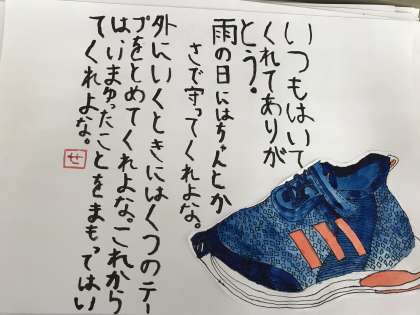 いつもはいて
くれてありが
とう。
雨の日にはちゃんとか
さで守ってくれよな。
外にいくときにはくつのテー
プをとめてくれよな。これから
は、いまゆったことをまもってはい
てくれよな。
せ